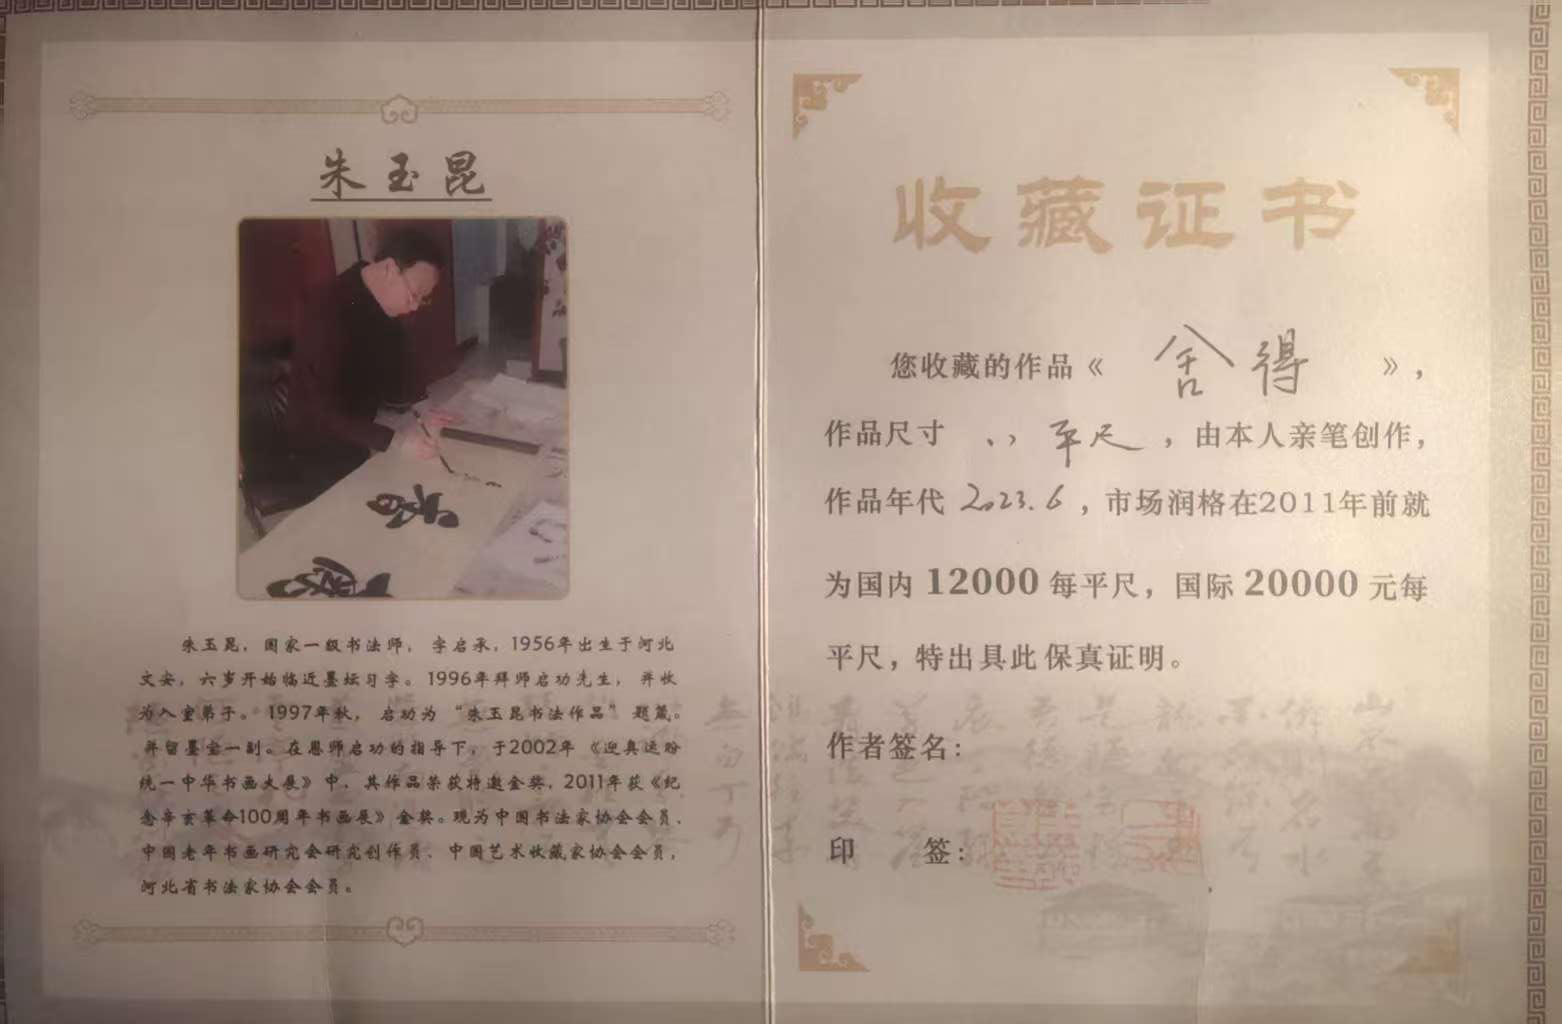 朱玉昆
朱玉昆，国家一级书法师，字启承，1956年出生于河北
文安，六岁开始临近墨坛习字。1996年拜师启功先生，并收
为入室弟子。1997年秋，启功为“朱玉昆书法作品”题箴。
并留墨宝一副。在恩师启功的指导下，于2002年《迎奥运盼
统一中华书画大展》中，其作品荣获特邀金奖，2011年获《纪
念辛亥革命100周年书画展》金奖。现为中国书法家协会会员、
中国老年书画研究会研究创作员、中国艺术收藏家协会会员，
河北省书法家协会会员。
收藏证书
您收藏的作品《舍得》，
作品尺寸 平尺，由本人亲笔创作，
作品年代2023.6，市场润格在2011年前就
为国内12000每平尺，国际20000元每
平尺，特出具此保真证明。
作者签名：
印 签：